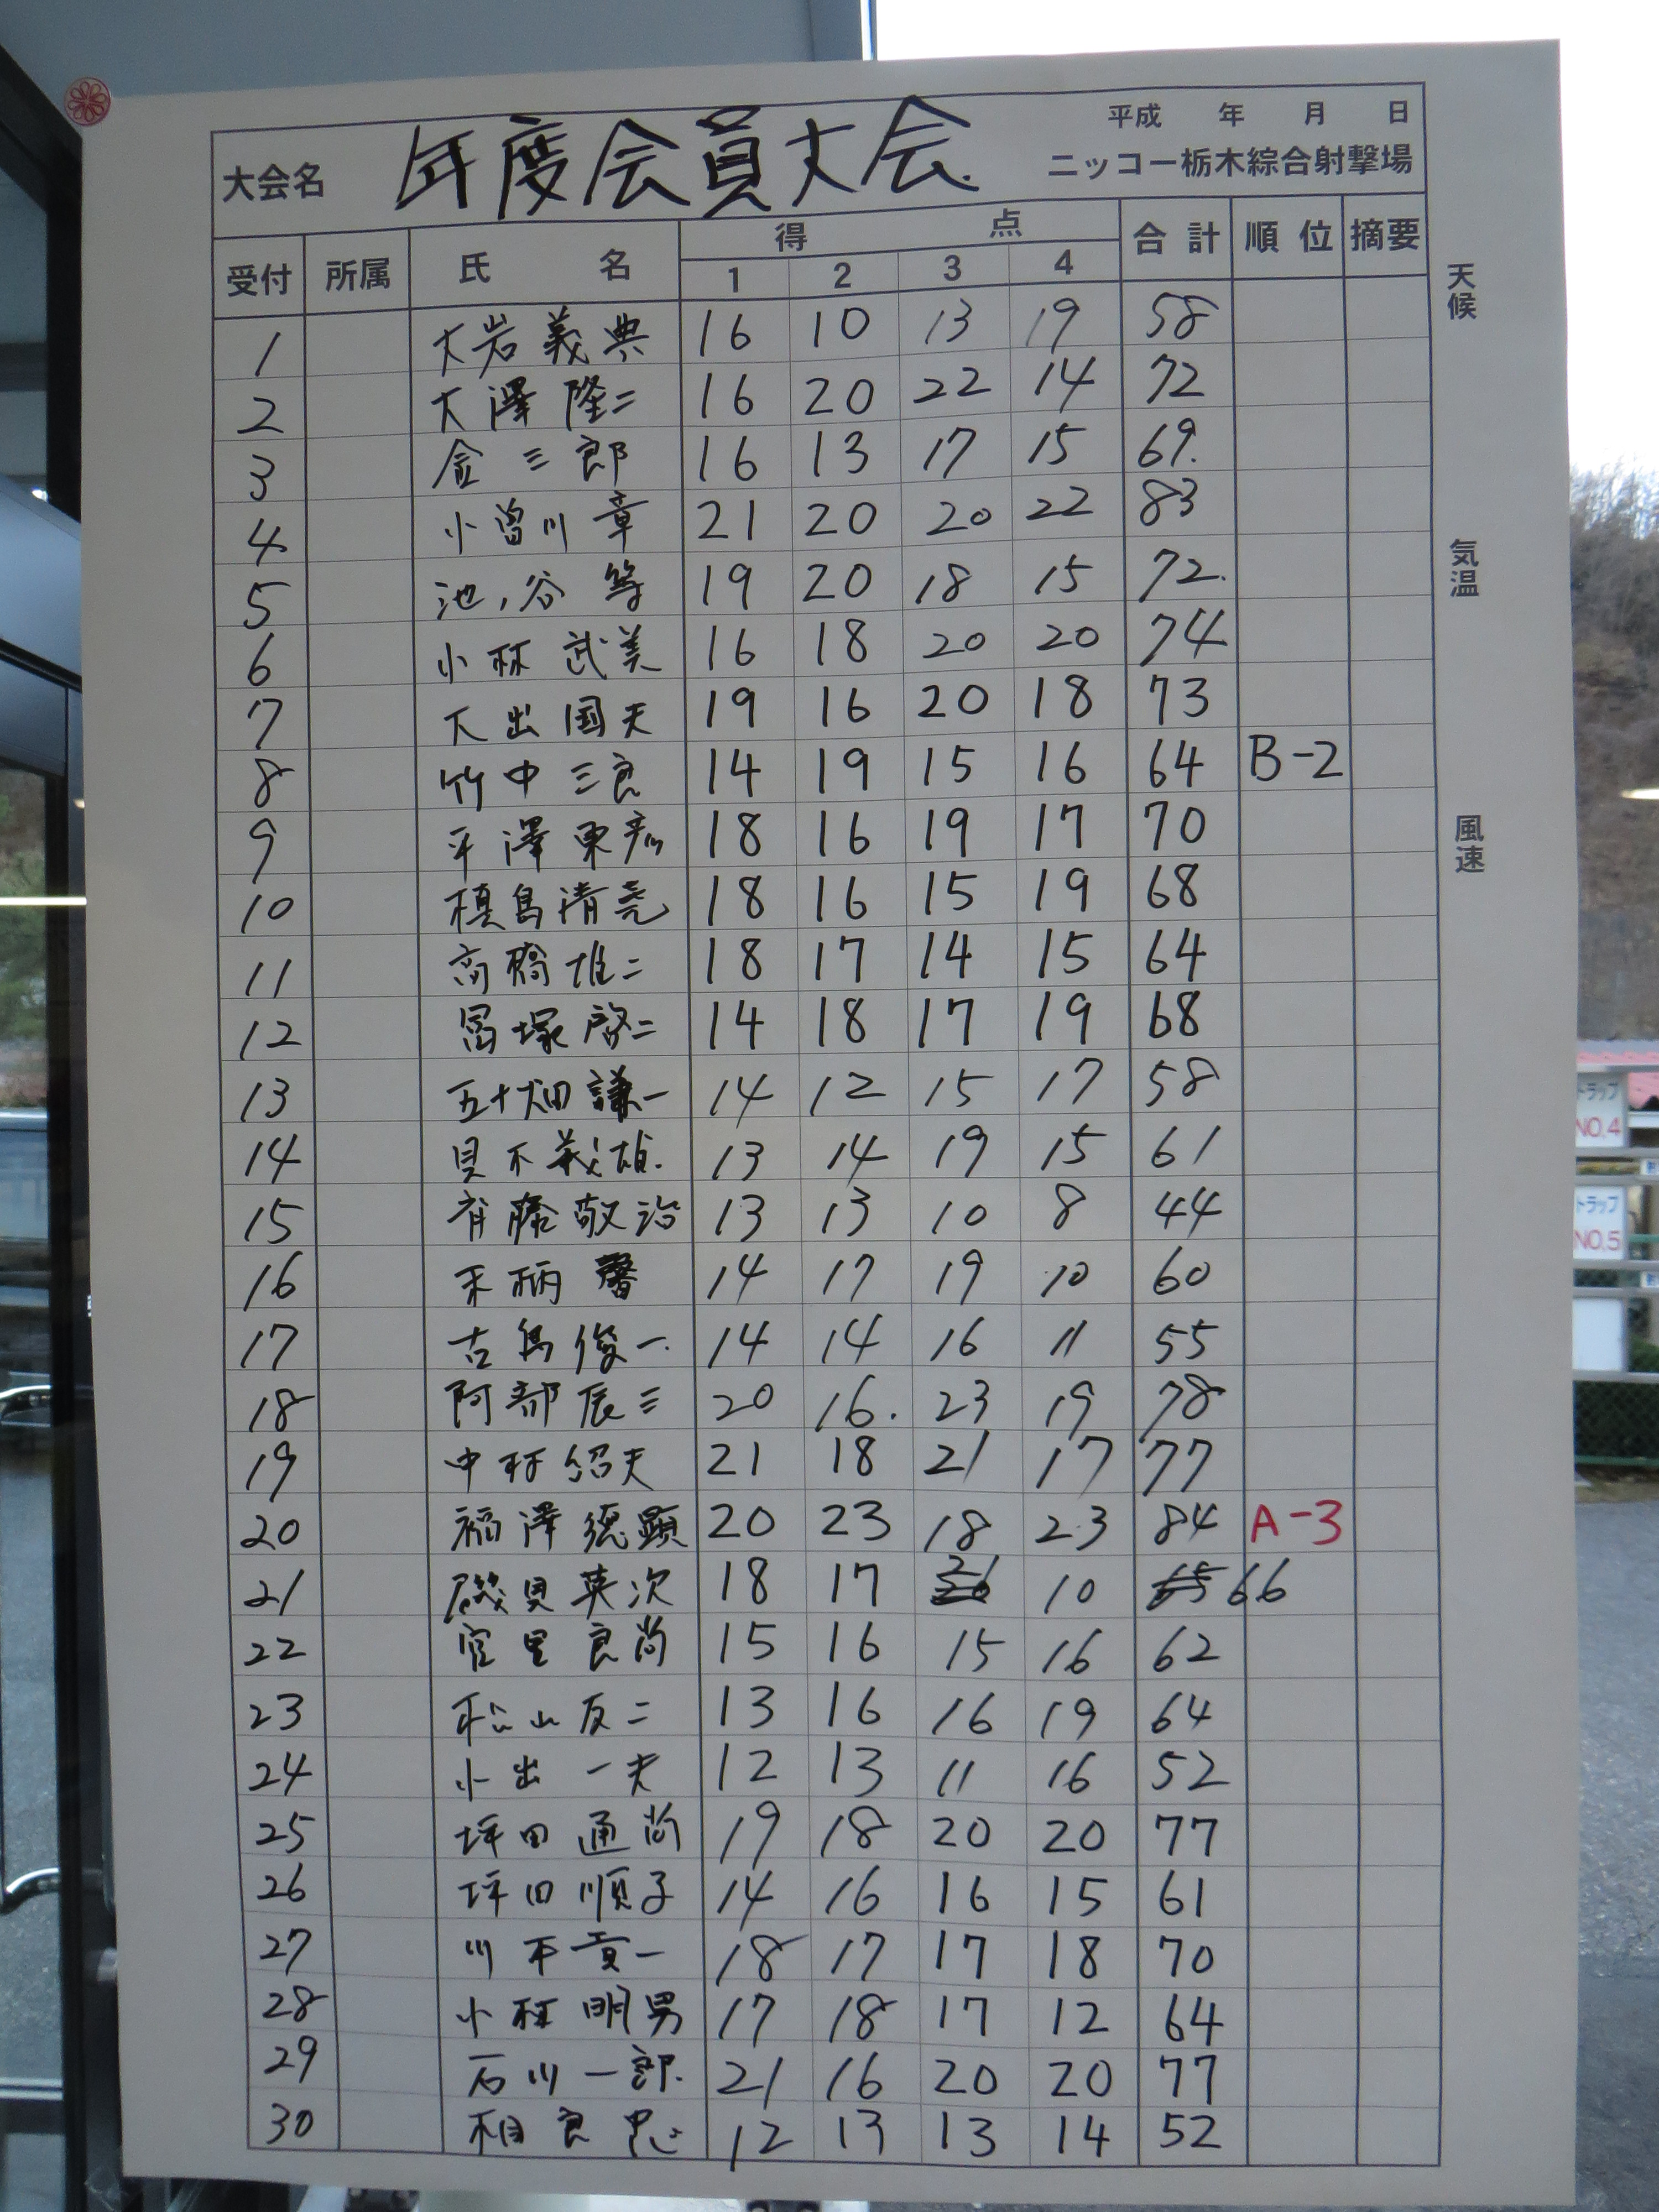 平成 年 月 日
大会名 年度会員大会 ニッコー栃木綜合射撃場
受付 所属 氏名 得点 合計 順位 摘要
1 2 3 4
1 大岩義典 16 10 13 19 58
2 大澤隆二 16 20 22 14 72
3 金三郎 16 13 17 15 69.
4 小曽川章 21 20 20 22 83
5 池ノ谷等 19 20 18 15 72.
6 小林武美 16 18 20 20 74
7 大出国夫 19 16 20 18 73
8 竹中三良 14 19 15 16 64 B-2
9 平澤東彦 18 16 19 17 70
10 槙島清尭 18 16 15 19 68
11 高橋雄二 18 17 14 15 64
12 冨塚啓二 14 18 17 19 68
13 五十畑謙一 14 12 15 17 58
14 義雄. 13 14 19 15 61
15 斉藤敬治 13 13 10 8 44
16 柄馨 14 17 19 10 60
17 古島俊一. 14 14 16 11 55
18 阿部辰三 20 16. 23 19 78
19 中村紹夫 21 18 21 17 77
20 福澤徳顕 20 23 18 23 84 A-3
21 磯貝英次 18 17 21 10 65 66
22 宮里良尚 15 16 15 16 62
23 松山友二 13 16 16 19 64
24 小出一夫 12 13 11 16 52
25 坪田通尚 19 18 20 20 77
26 坪田順子 14 16 16 15 61
27 川平貢一 18 17 17 18 70
28 小林明男 17 18 17 12 64
29 石川一郎. 21 16 20 20 77
30 相良忠 12 13 13 14 52
天候
気温
風速
トラップ
NO.4
トラップ
NO.5